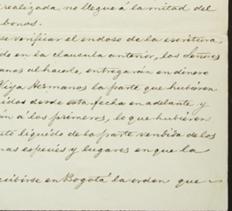 realizada no llegue á la mitad del
bonos.
se verificar el endoso de la escritura
do en la clausula anterior, los señores
anos al hacerlo, entregarán en dinero
Hermanos la parte que hubieren
idos desde esta fecha en adelante y
án á los primeros, lo que hubieren
líquido de la parte vendida de los
mas especies y lugares en que la
cibirse en Bogotá la orden que